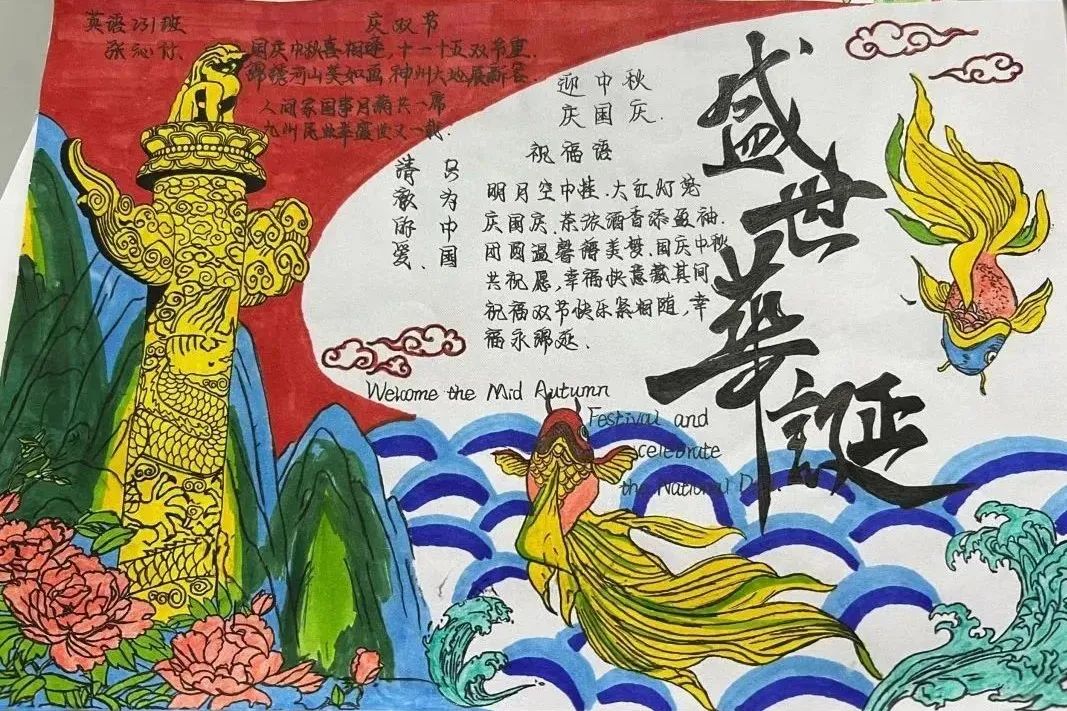 英语231班
张沁
庆双节
国庆中秋喜相逢,十一十五双节重.
锦绣河山美如画,神州大地展新容.
人间家国事月满共一席.
九州民业华盛世又一载.
迎中秋
庆国庆.
祝福语
只为中国
清澈的爱、
明月空中挂、大红灯笼
庆国庆、茶浓酒香添盈袖.
团圆温馨语美梦、国庆中秋
共祝愿,幸福快意藏其间
祝福双节快乐紧相随,幸
福永绵延.
盛世华诞
Welcome the Mid Autumn
Festival and
celebrate
the National D